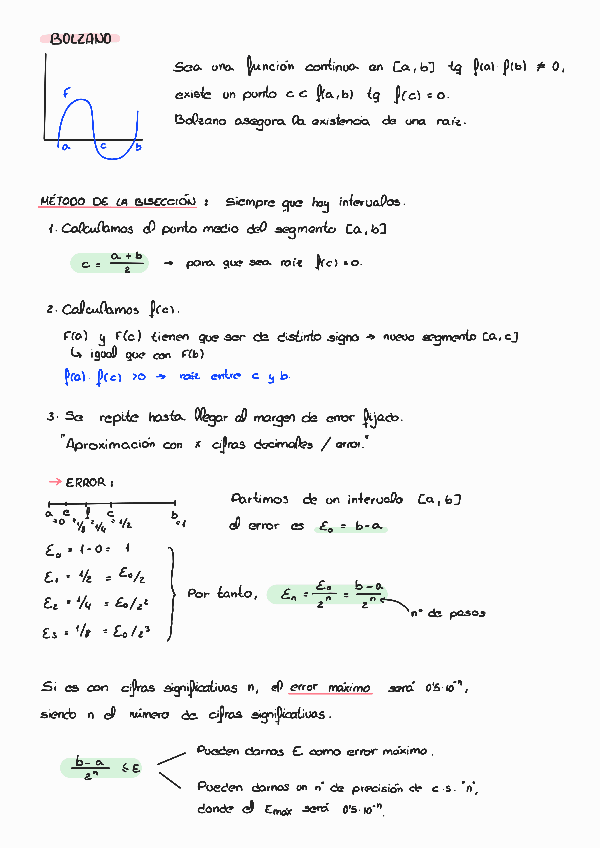 BOLZANO
Sea una función continua en [a,b] tq f(a)·f(b) ≠ 0,
existe un punto c ⊂ f(a,b) tq f(c) = 0.
Bolzano asegura la existencia de una raíz.
F
a c b
MÉTODO DE LA BISECCIÓN: Siempre que hay intervalos.
1. Calculamos el punto medio del segmento [a,b]
c = a+b/2 → para que sea raíz f(c)=0.
2. Calculamos f(c).
F(a) y F(c) tienen que ser de distinto signo → nuevo segmento [a,c]
↳ igual que con F(b)
f(a)·f(c) >0 → raíz entre c y b.
3. Se repite hasta llegar al margen de error fijado.
"Aproximación con x cifras decimales / error."
→ ERROR:
Partimos de un intervalo [a,b]
a c f c b
=0 =1/8 =1/4 =1/2 =1
el error es Ɛ₀ = b-a
Ɛ₀ = 1-0 = 1
Ɛ₁ = 1/2 = Ɛ₀/2
Ɛ₂ = 1/4 = Ɛ₀/2²
Ɛ₃ = 1/8 = Ɛ₀/2³
Por tanto, Ɛₙ = Ɛ₀/2ⁿ = b-a/2ⁿ
nº de pasos
Si es con cifras significativas n, el error máximo será 0'5·10⁻ⁿ,
siendo n el número de cifras significativas.
b-a/2ⁿ ≤ Ɛ
Pueden darnos Ɛ como error máximo.
Pueden darnos un nº de precisión de c.s. "n",
donde el Ɛmáx será 0'5·10⁻ⁿ.